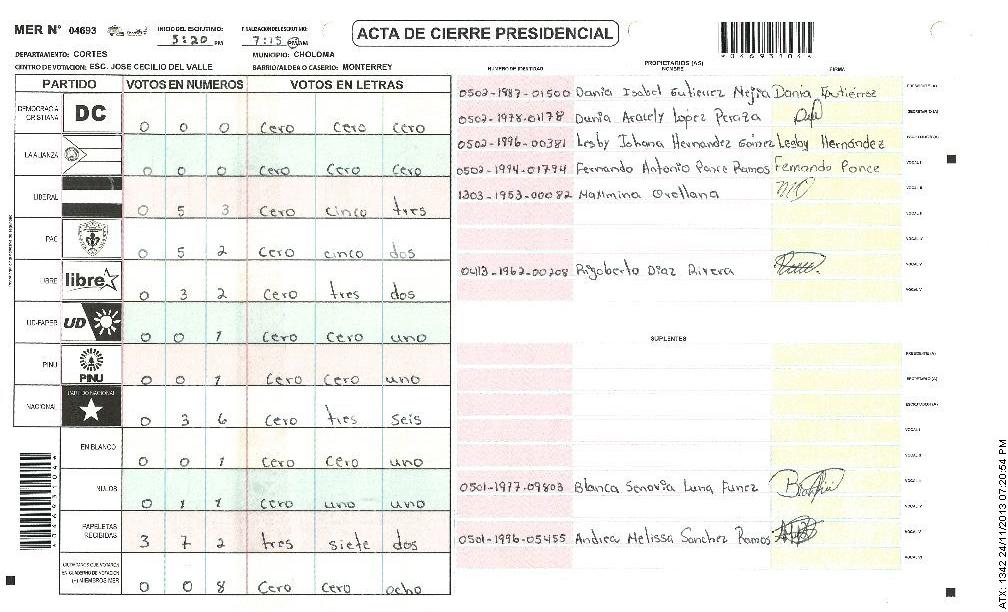 MER N° 04693 INICIO DEL ESCRUTINIO: 5:20 PM FINALIZACION DEL ESCRUTINIO: 7:15 PM/AM ACTA DE CIERRE PRESIDENCIAL
DEPARTAMENTO: CORTES MUNICIPIO: CHOLOMA
CENTRO DE VOTACION: ESC. JOSE CECILIO DEL VALLE BARRIO/ALDEA O CASERIO: MONTERREY
PARTIDO VOTOS EN NUMEROS VOTOS EN LETRAS
DEMOCRACIA CRISTIANA DC 0 0 0 Cero Cero Cero
LA ALIANZA 0 0 0 Cero Cero Cero
LIBERAL 0 5 3 Cero cinco tres
PAC 0 5 2 Cero cinco dos
LIBRE libre 0 3 2 Cero tres dos
UD-FAPER UD 0 0 1 Cero Cero uno
PINU PINU 0 0 1 Cero Cero uno
NACIONAL PARTIDO NACIONAL 0 3 6 Cero tres seis
EN BLANCO 0 0 1 Cero Cero uno
NULOS 0 1 1 Cero uno uno
PAPELETAS RECIBIDAS 3 7 2 tres siete dos
CIUDADANOS QUE VOTARON EN CUADERNO DE VOTACION (+) MIEMBROS MER 0 0 8 Cero Cero ocho
*04693104*
NUMERO DE IDENTIDAD PROPIETARIOS (AS) NOMBRE FIRMA
0502-1987-01500 Dania Isabel Gutierrez Mejia Dania Gutiérrez PRESIDENTE (A)
0502-1978-01178 Dunia Aracely Lopez Peraza SECRETARIO (A)
0502-1996-00381 Lesby Johana Hernandez Gómez Lesby Hernández ESCRUTADOR (A)
0502-1994-01794 Fernando Antonio Ponce Ramos Fernando Ponce VOCAL I
1303-1953-00082 Maximina Orellana VOCAL II
0413-1962-00208 Rigoberto Diaz Rivera VOCAL V
SUPLENTES
PRESIDENTE (A)
SECRETARIO (A)
ESCRUTADOR (A)
VOCAL I
VOCAL II
0501-1977-09803 Blanca Senovia Luna Funez
0501-1996-05455 Andrea Melissa Sanchez Ramos
*04693104*
ATX: 1342 24/11/2013 07:20:54 PM